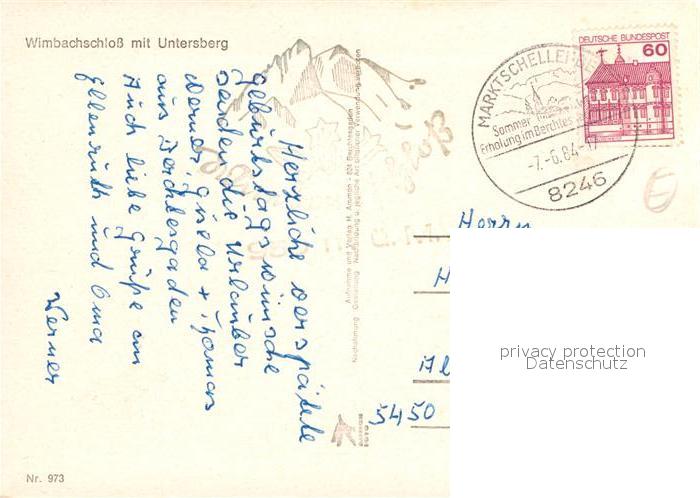 Wimbachschloß mit Untersberg
Herzliche verspätete
Geburtstagswünsche
senden die Urlauber
Werner, Gisela + Thomas
aus Berchtesgaden
Auch liebe Grüße an
Ellenruth und Oma
Werner
Aufnahme und Verlag H. Ammon - 824 Berchtesgaden
Nachahmung - Gestaltung - Nachbildung u. jegliche Art bildlicher Verwendung verboten
MARKTSCHELLENB
Sommer
Erholung im Berchtes
-7.-6.84-17
8246
DEUTSCHE BUNDESPOST
60
Herrn
H
Al
5450
privacy protection
Datenschutz
Nr. 973